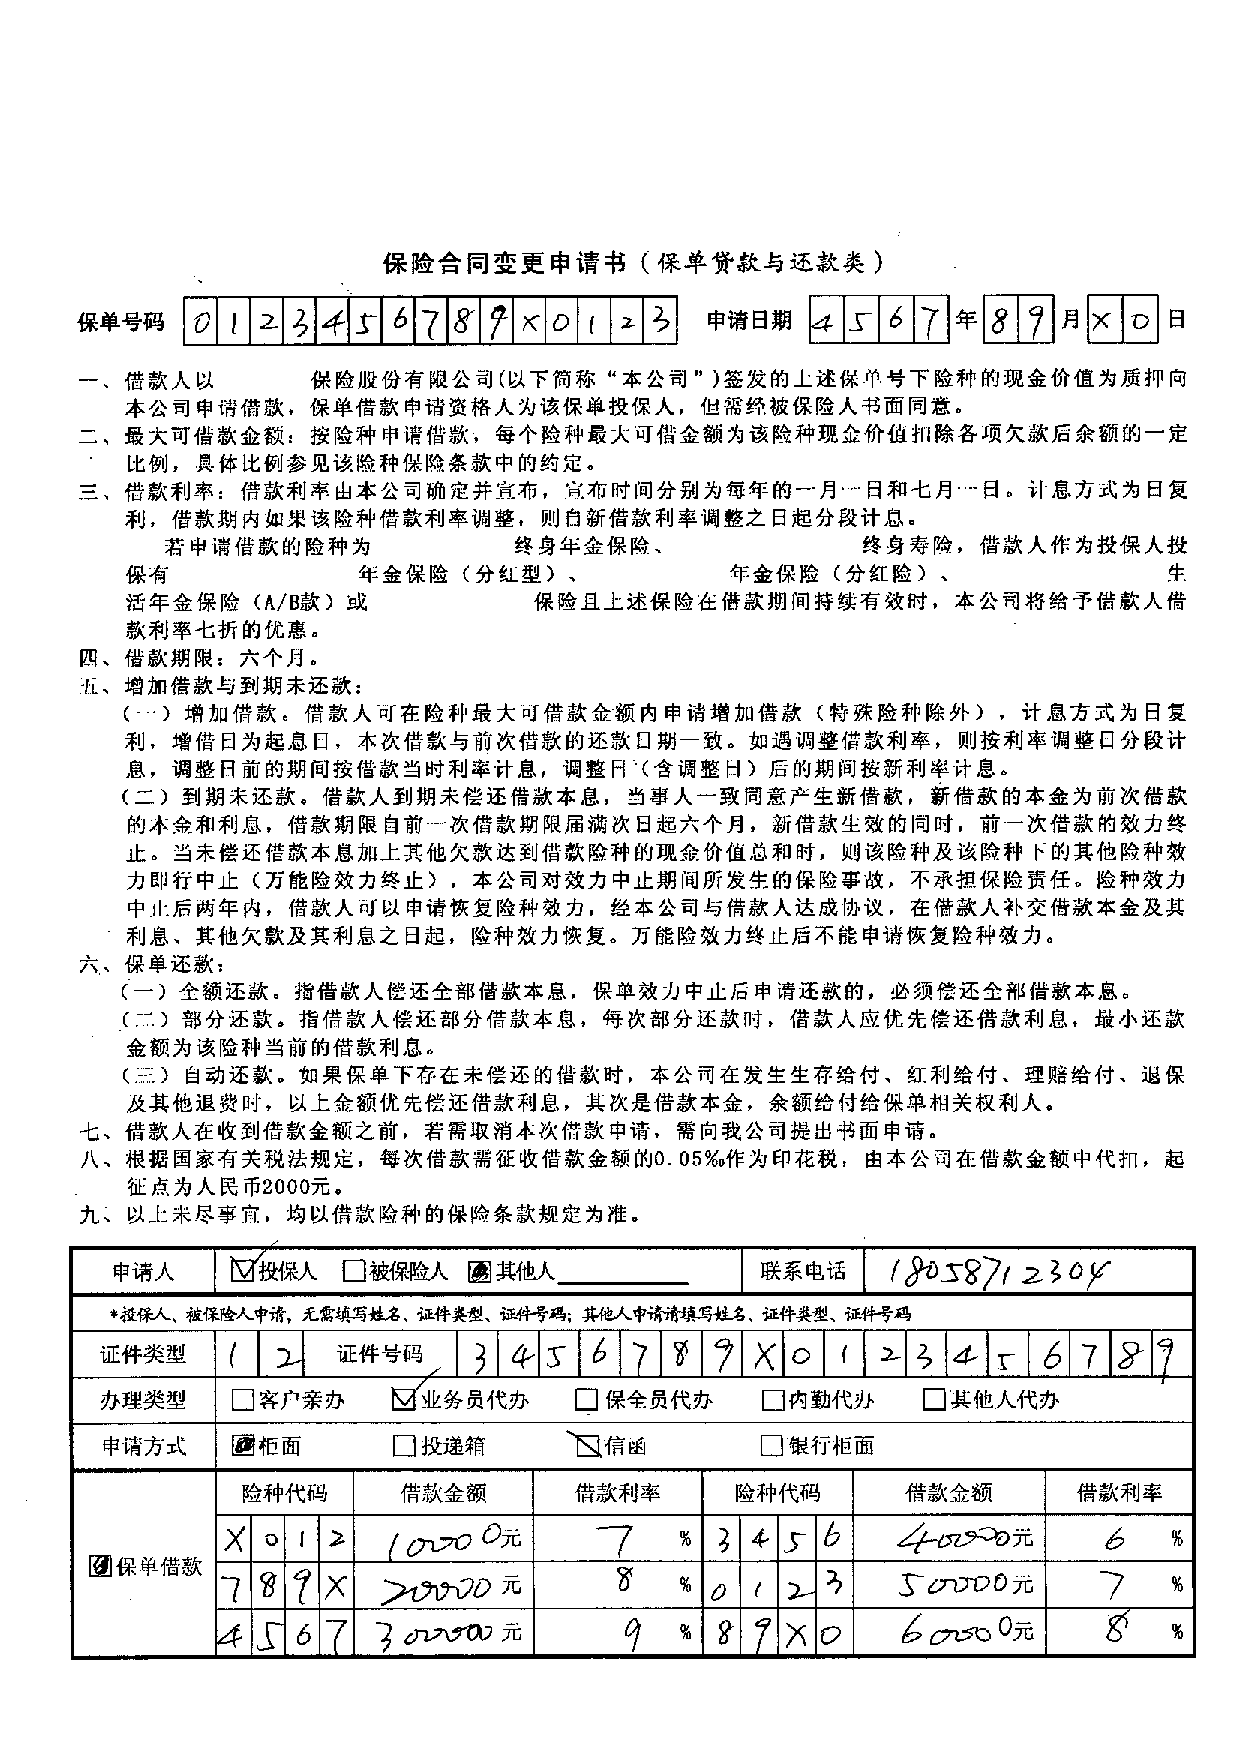 保险合同变更申请书（保单贷款与还款类）
保单号码 0 1 2 3 4 5 6 7 8 9 X 0 1 2 3 申请日期 4 5 6 7 年 8 9 月 X 0 日
一、借款人以 保险股份有限公司(以下简称“本公司”)签发的上述保单号下险种的现金价值为质押向
本公司申请借款，保单借款申请资格人为该保单投保人，但需经被保险人书面同意。
二、最大可借款金额：按险种申请借款，每个险种最大可借金额为该险种现金价值扣除各项欠款后余额的一定
比例，具体比例参见该险种保险条款中的约定。
三、借款利率：借款利率由本公司确定并宣布，宣布时间分别为每年的一月一日和七月一日。计息方式为日复
利，借款期内如果该险种借款利率调整，则自新借款利率调整之日起分段计息。
若申请借款的险种为 终身年金保险、 终身寿险，借款人作为投保人投
保有 年金保险（分红型）、 年金保险（分红险）、 生
活年金保险（A/B款）或 保险且上述保险在借款期间持续有效时，本公司将给予借款人借
款利率七折的优惠。
四、借款期限：六个月。
五、增加借款与到期未还款：
（一）增加借款。借款人可在险种最大可借款金额内申请增加借款（特殊险种除外），计息方式为日复
利，增借日为起息日，本次借款与前次借款的还款日期一致。如遇调整借款利率，则按利率调整日分段计
息，调整日前的期间按借款当时利率计息，调整日（含调整日）后的期间按新利率计息。
（二）到期未还款。借款人到期未偿还借款本息，当事人一致同意产生新借款，新借款的本金为前次借款
的本金和利息，借款期限自前一次借款期限届满次日起六个月，新借款生效的同时，前一次借款的效力终
止。当未偿还借款本息加上其他欠款达到借款险种的现金价值总和时，则该险种及该险种下的其他险种效
力即行中止（万能险效力终止），本公司对效力中止期间所发生的保险事故，不承担保险责任。险种效力
中止后两年内，借款人可以申请恢复险种效力，经本公司与借款人达成协议，在借款人补交借款本金及其
利息、其他欠款及其利息之日起，险种效力恢复。万能险效力终止后不能申请恢复险种效力。
六、保单还款：
（一）全额还款。指借款人偿还全部借款本息，保单效力中止后申请还款的，必须偿还全部借款本息。
（二）部分还款。指借款人偿还部分借款本息，每次部分还款时，借款人应优先偿还借款利息，最小还款
金额为该险种当前的借款利息。
（三）自动还款。如果保单下存在未偿还的借款时，本公司在发生生存给付、红利给付、理赔给付、退保
及其他退费时，以上金额优先偿还借款利息，其次是借款本金，余额给付给保单相关权利人。
七、借款人在收到借款金额之前，若需取消本次借款申请，需向我公司提出书面申请。
八、根据国家有关税法规定，每次借款需征收借款金额的0.05‰作为印花税，由本公司在借款金额中代扣，起
征点为人民币2000元。
九、以上未尽事宜，均以借款险种的保险条款规定为准。
申请人 投保人 被保险人 其他人 联系电话 18058712304
*投保人、被保险人申请，无需填写姓名、证件类型、证件号码；其他人申请请填写姓名、证件类型、证件号码
证件类型 1 2 证件号码 3 4 5 6 7 8 9 X 0 1 2 3 4 5 6 7 8 9
办理类型 客户亲办 业务员代办 保全员代办 内勤代办 其他人代办
申请方式 柜面 投递箱 信函 银行柜面
险种代码 借款金额 借款利率 险种代码 借款金额 借款利率
X 0 1 2 10000元 7 % 3 4 5 6 40000元 6 %
保单借款
7 8 9 X 20000元 8 % 0 1 2 3 50000元 7 %
4 5 6 7 30000元 9 % 8 9 X 0 60000元 8 %